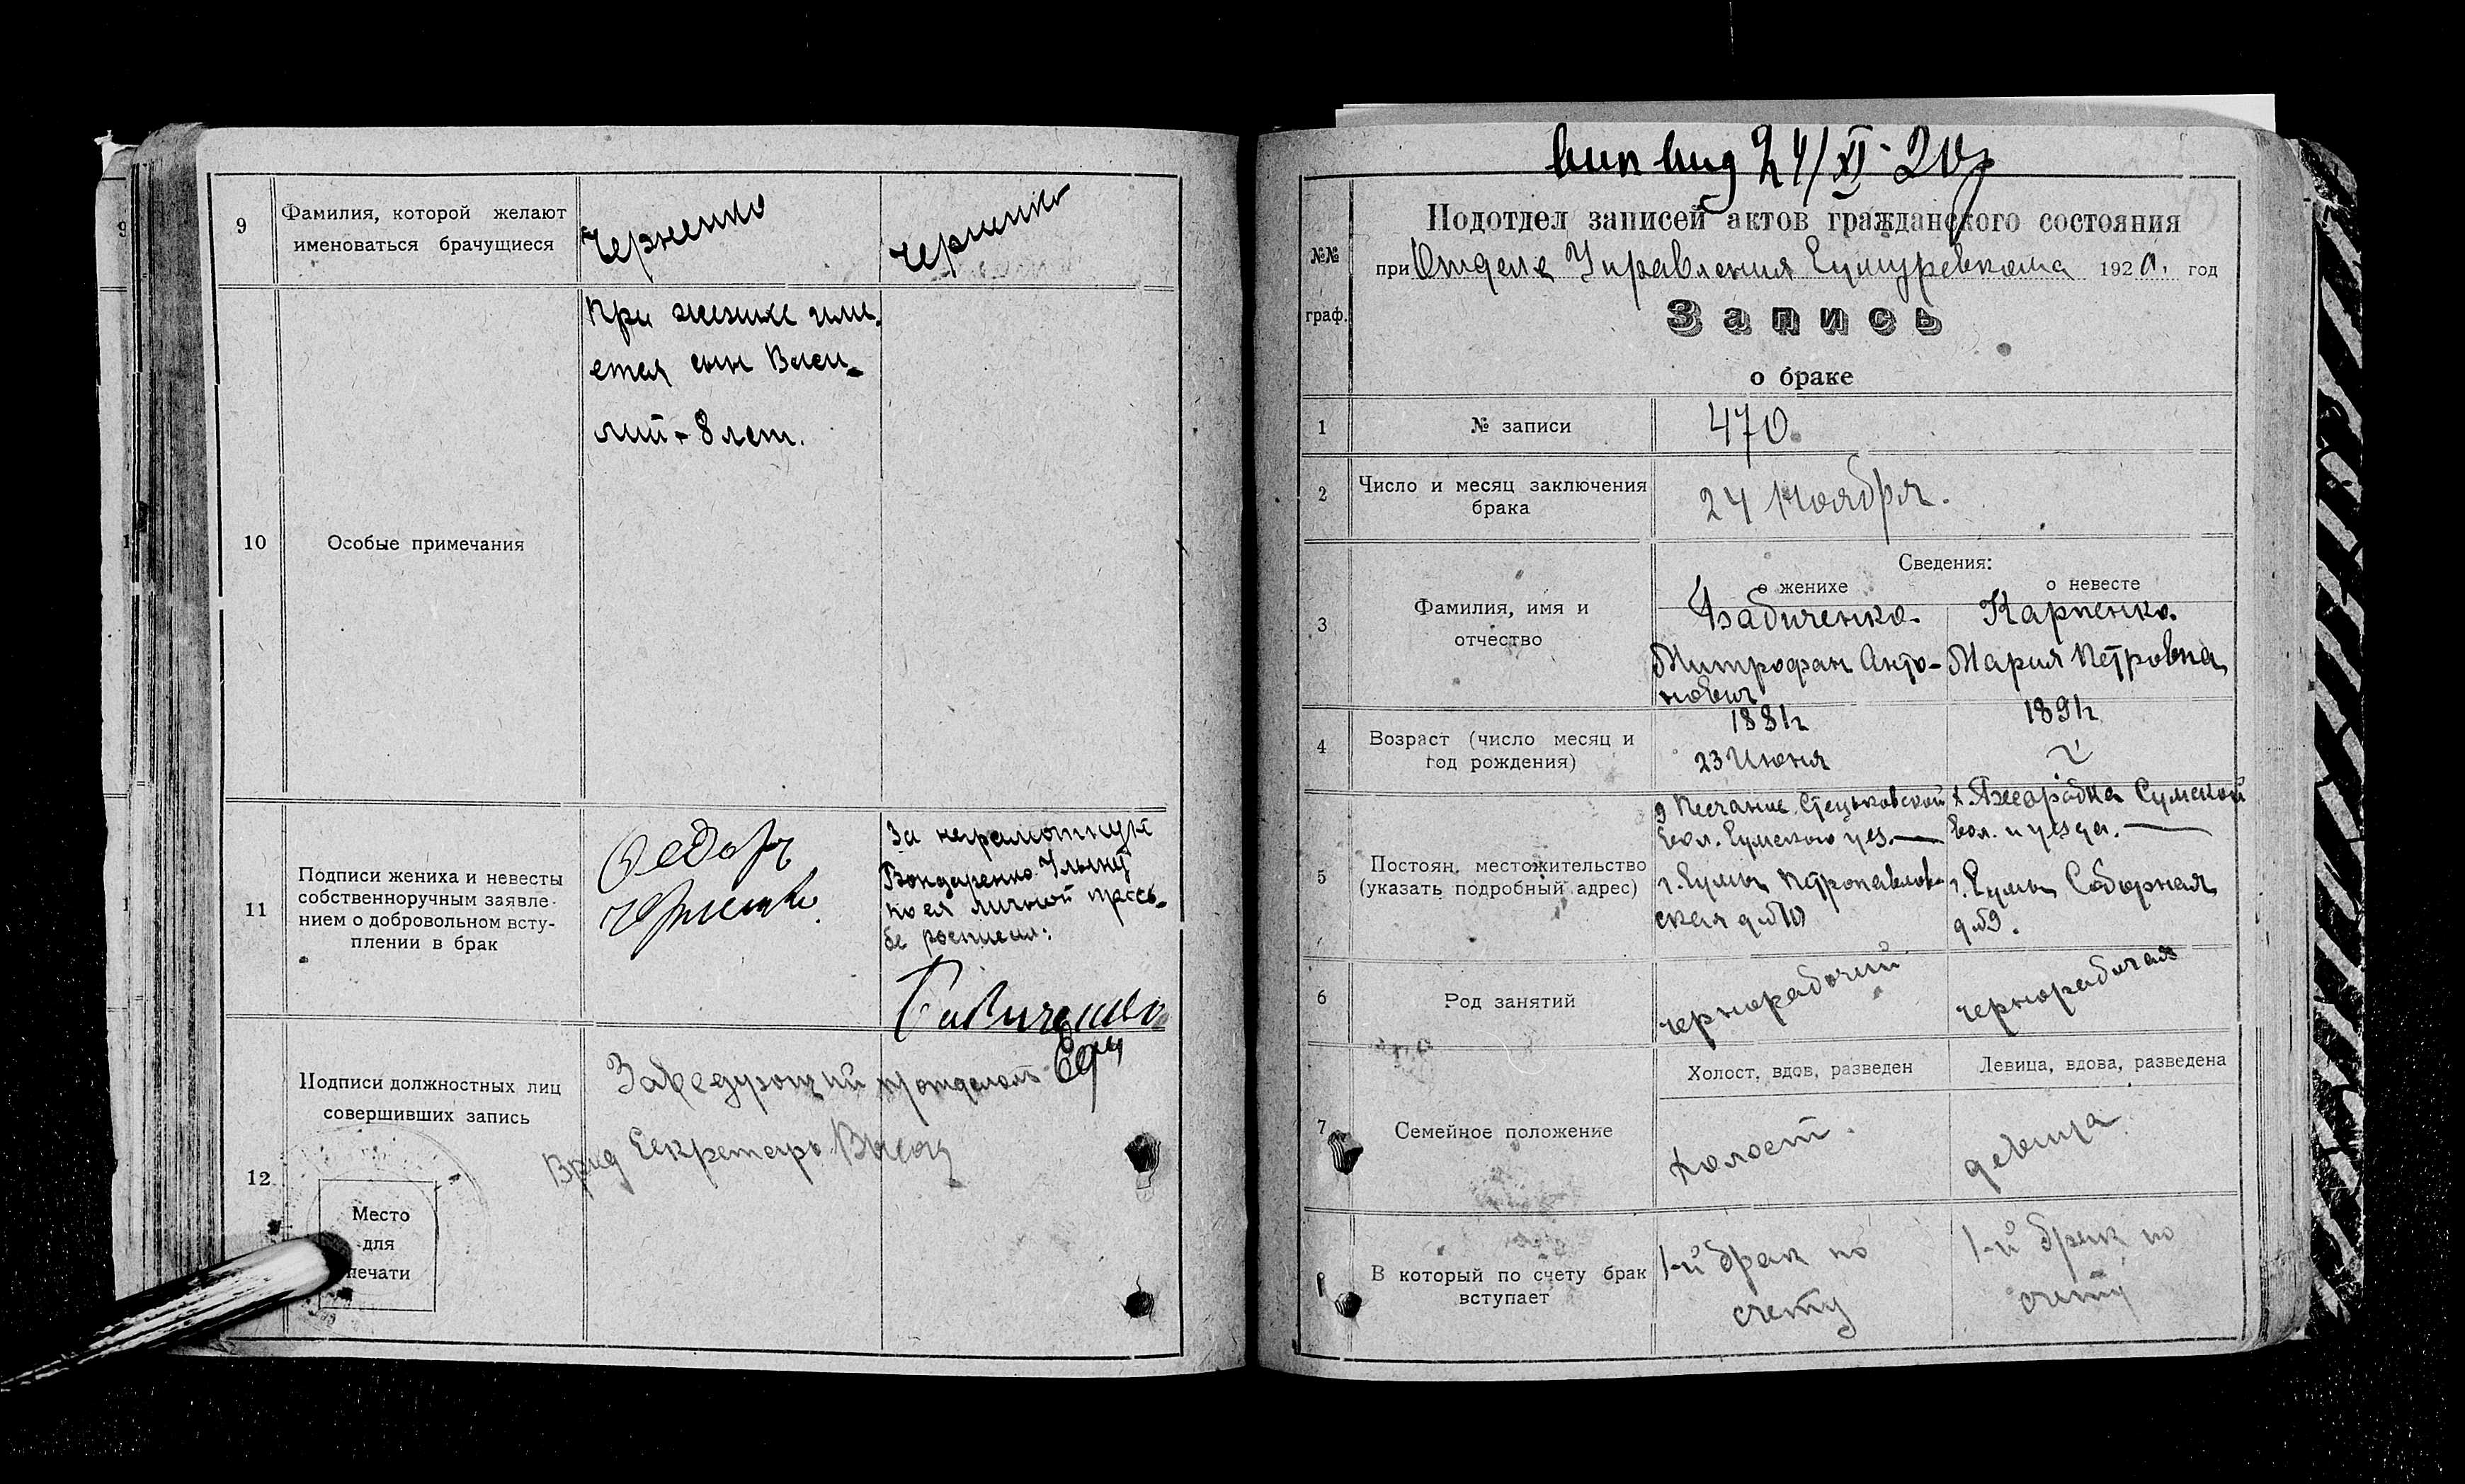 9
Фамилия, которой желают
именоваться брачущиеся
Черненко
Черненко
10
Особые примечания
При женихе име-
ется сын Васи-
лий - 8 лет.
11
Подписи жениха и невесты
собственноручным заявле-
нием о добровольном всту-
плении в брак
Федор
Черненко
За неграмотную
Бондаренко Ульяну
по ея личной прось-
бе росписал:
Бабиченко
12
Подписи должностных лиц
совершивших запись
Заведующий п/отделом
Врид Секретарь
Место
для
печати
24/XI-20г
№№
граф.
Подотдел записей актов гражданского состояния
при Отделе Управления Сумуревкома 1920. год
Запись
о браке
1
№ записи
470
2
Число и месяц заключения
брака
24 Ноября.
Сведения:
о женихе
о невесте
3
Фамилия, имя и
отчество
Бабиченко
Митрофан Анто-
нович
Карпенко
Мария Петровна
4
Возраст (число месяц и
год рождения)
1881г
23 Июня
1891г
?
5
Постоян. местожительство
(указать подробный адрес)
д Песчаное Стецьковской
вол. Сумского уез. —
г. Сумы Петропавлов-
ская д №10
Сумской
вол. и уезда. —
г. Сумы Соборная
д №9.
6
Род занятий
чернорабочий
чернорабочая
7
Семейное положение
Холост, вдов, разведен
Девица, вдова, разведена
холост.
девица
8
В который по счету брак
вступает
1-й брак по
счету
1-й брак по
счету